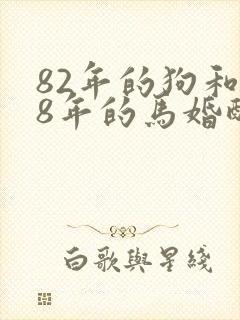 82年的狗和
8年的馬婚
白歌與星綫